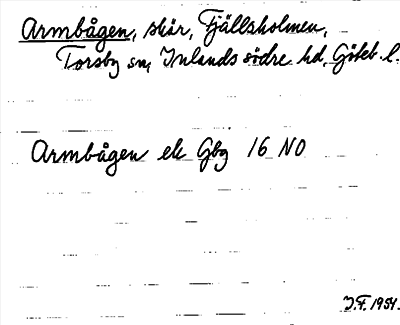 Armbågen, skär, Fjällsholmen,
Torsby sn, Inlands södre hd, Göteb. l.
Armbågen ek Gbg 16 NO
J.F. 1954.